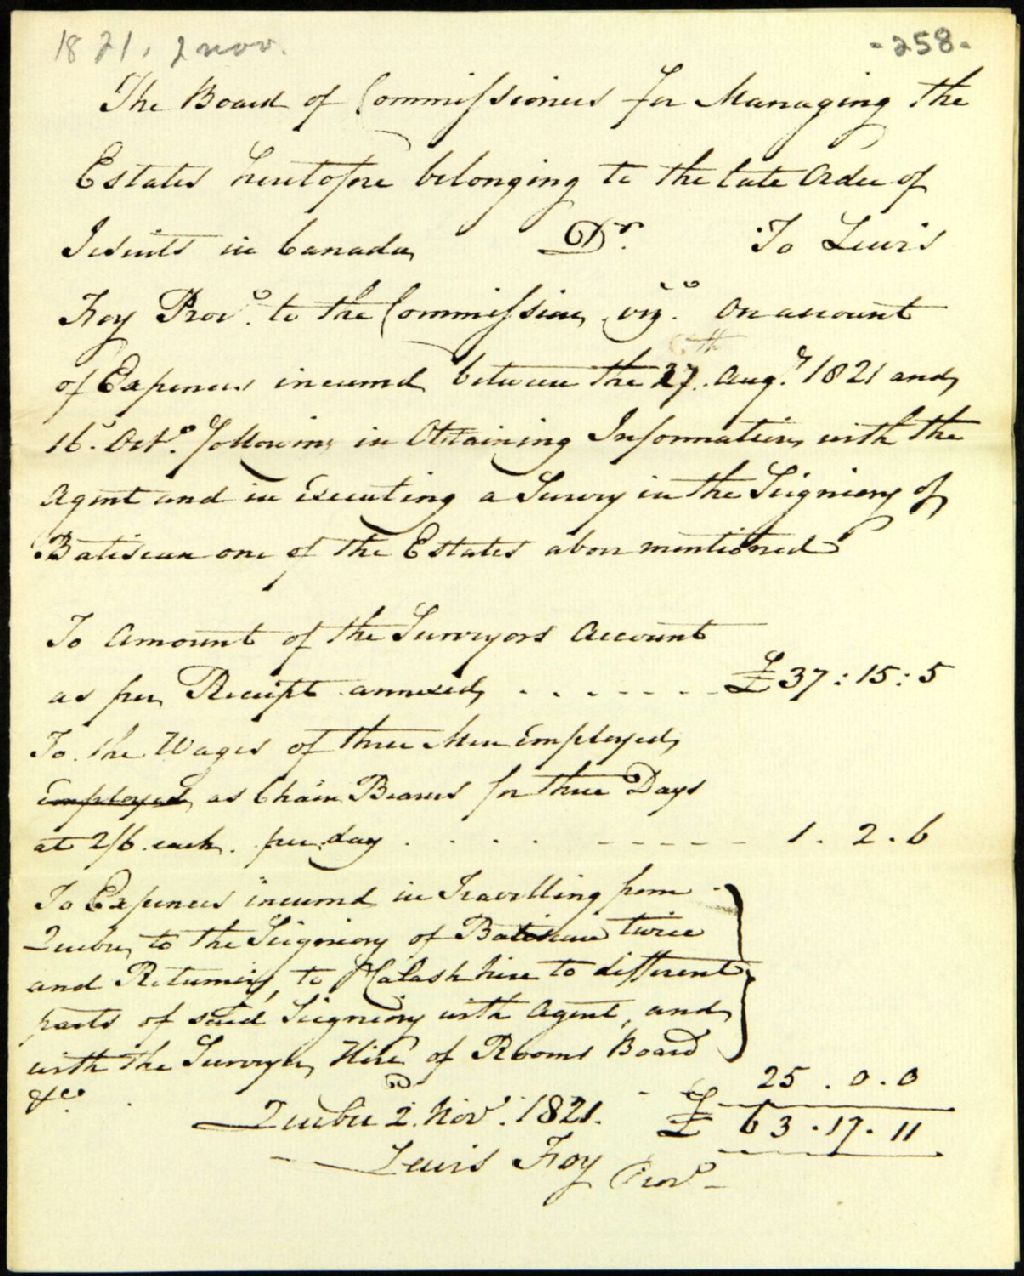 1821. 2 nov.
- 258 -
The Board of Commissioners for Managing the
Estates heretofore belonging to the late Order of
Jesuits in Canada, Dr. To Lewis
Foy Provo. to the Commission, vizo. On account
of Expences incurred, between the 27. Augt. 1821 and,
16. Octo. following in Obtaining Information, with the
Agent and in Executing a Survey in the Seigniory of
Batiscan one of the Estates above mentioned
To Amount of the Surveyors Account
as per, Receipt annexed, . . . . . . . £ 37 : 15 : 5
To the Wages of three Men Employed,
Employed, as Chain Bearers for three Days
at 2/6 each. per, day . . . . . . . . . 1 . 2 . 6
To Expences incurred in Travelling from
Quebec, to the Seigniory of Batiscan twice
and Returning, to hire to different
parts of said Seigniory with Agent, and,
with the Surveyor, Hire of Rooms Board
&c. 25 . 0 . 0
Quebec 2. Novr. 1821. £ 63 . 17 . 11
Lewis Foy Provo